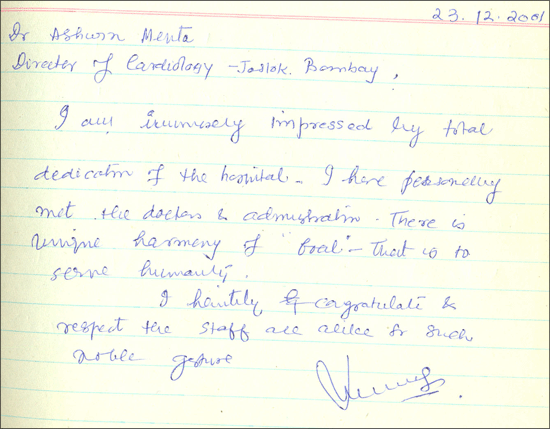 23.12.2001
Dr Ashwin Mehta
Director of Cardiology - Jaslok. Bombay,
I am immensely impressed by total
dedication of the hospital - I have personally
met the doctors & administration. There is
unique harmony of "Goal" - That is to
serve humanity.
I heartily congratulate &
respect the staff all alike for such
noble gesture